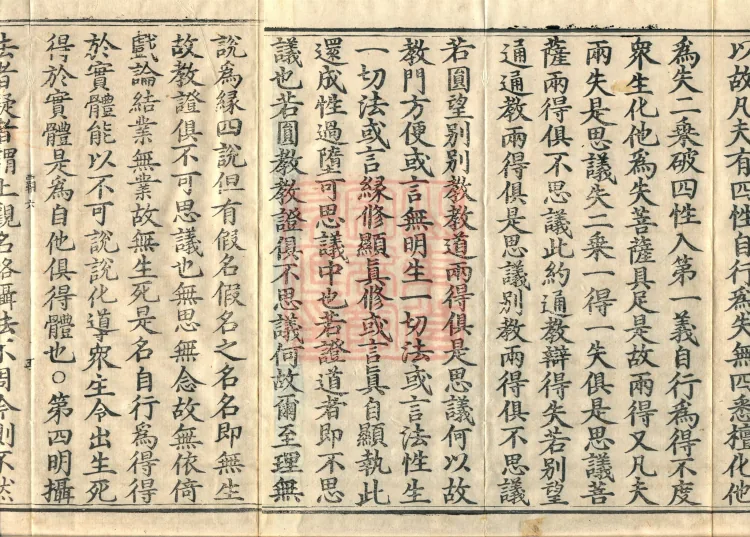 以故凡夫有四性自行為失無四悉檀化他
為失二乘破四性入第一義自行為得不度
眾生化他為失菩薩具足是故兩得又凡夫
兩失是思議失二乘一得一失俱是思議菩
薩兩得俱不思議此約通教辯得失若別望
通通教兩得俱是思議別教兩得俱不思議
若圓望別別教教道兩得俱是思議何以故
教門方便或言無明生一切法或言法性生
一切法或言緣修顯真修或言真自顯執此
還成性過墮可思議中也若證道者即不思
議也若圓教教證俱不思議何故爾至理無
說為緣四說但有假名假名之名名即無生
故教證俱不可思議也無思無念故無依倚
戲論結業無業故無生死是名自行為得得
於實體能以不可說說化導眾生令出生死
得於實體是為自他俱得體也○第四明攝
霸六
法者疑者謂止觀名略攝法不周今則不然